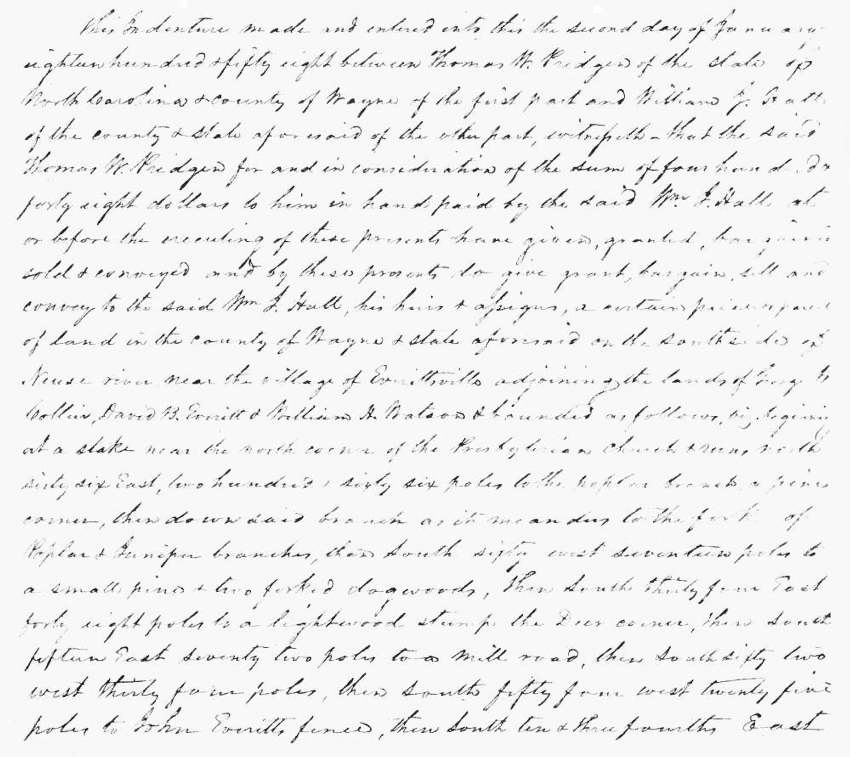 This Indenture made and entered into this the second day of January
eighteen hundred & fifty eight between Thomas W. Pridgen of the state of
North Carolina & county of Wayne of the first part and William J. Hall
of the county & state aforesaid of the other part, witnesseth - that the said
Thomas W. Pridgen for and in consideration of the sum of four hund
forty eight dollars to him in hand paid by the said Wm J. Hall at
or before the executing of these presents have given, granted, bargain
sold & conveyed and by these presents do give grant, bargain, sell and
convey to the said Wm J. Hall, his heirs & assigns, a certain piece or parcel
of land in the county of Wayne & state aforesaid on the south side of
Neuse river near the village of Everittsville adjoining the lands of
Collier, David B. Everitt & William H. Watson & bounded as follows, viz, begining
at a stake near the north corner of the Presbyterian church & runs north
sixty six East, two hundred & sixty six poles to the poplar branch a pine
corner, then down said branch as it meanders to the fork of
Poplar & Juniper branches, then South sixty west seventeen poles to
a small pine & two forked dogwoods, then south thirty four East
forty eight poles to a lightwood stump the Deer corner, then south
fifteen East seventy two poles to a mill road, then South sixty two
west thirty four poles, then south fifty four west twenty five
poles to John Everitts fence, then South ten & three fourths East